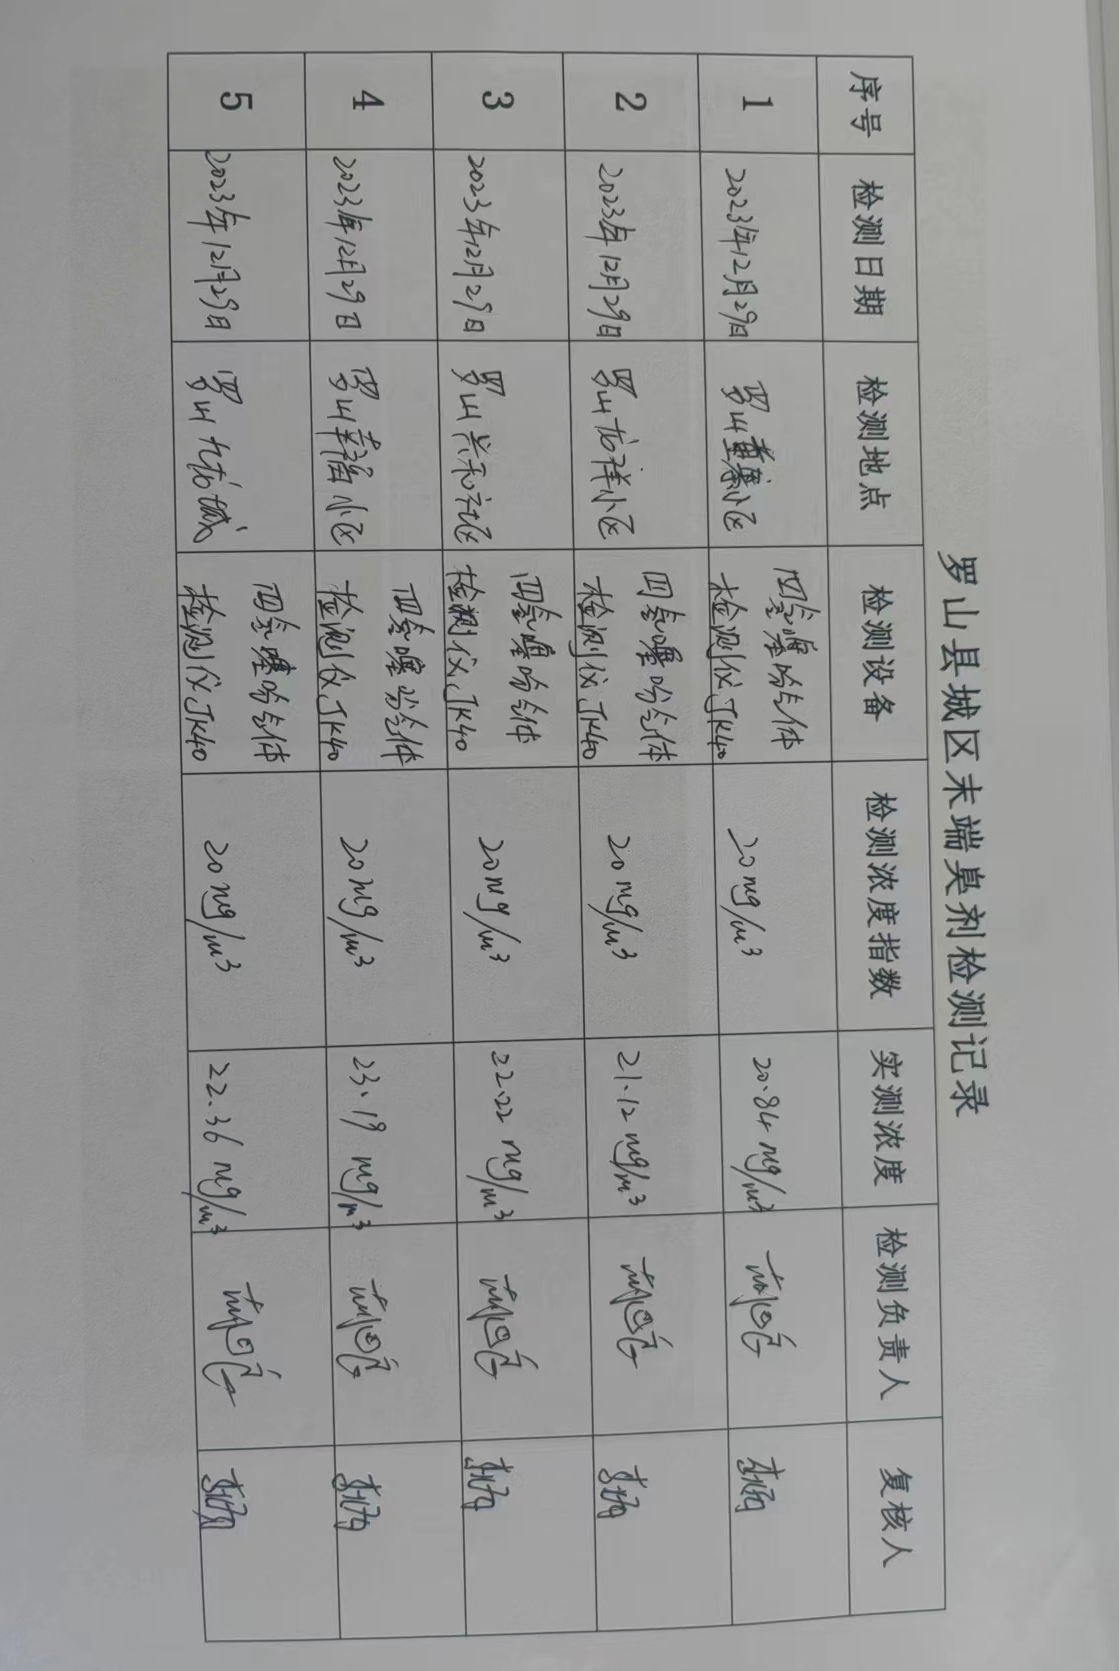 罗山县城区末端臭剂检测记录
序号 检测日期 检测地点 检测设备 检测浓度指数 实测浓度 检测负责人 复核人
1 2023年12月29日 罗山 小区 四氢噻吩气体 20mg/m3 20.84mg/m3
检测仪JK40
2 2023年12月29日 罗山龙祥小区 四氢噻吩气体 20mg/m3 21.12mg/m3
检测仪JK40
3 2023年12月29日 罗山兴和社区 四氢噻吩气体 20mg/m3 22.22mg/m3
检测仪JK40
4 2023年12月29日 罗山幸福小区 四氢噻吩气体 20mg/m3 23.19mg/m3
检测仪JK40
5 2023年12月29日 罗山九龙城 四氢噻吩气体 20mg/m3 22.36mg/m3
检测仪JK40